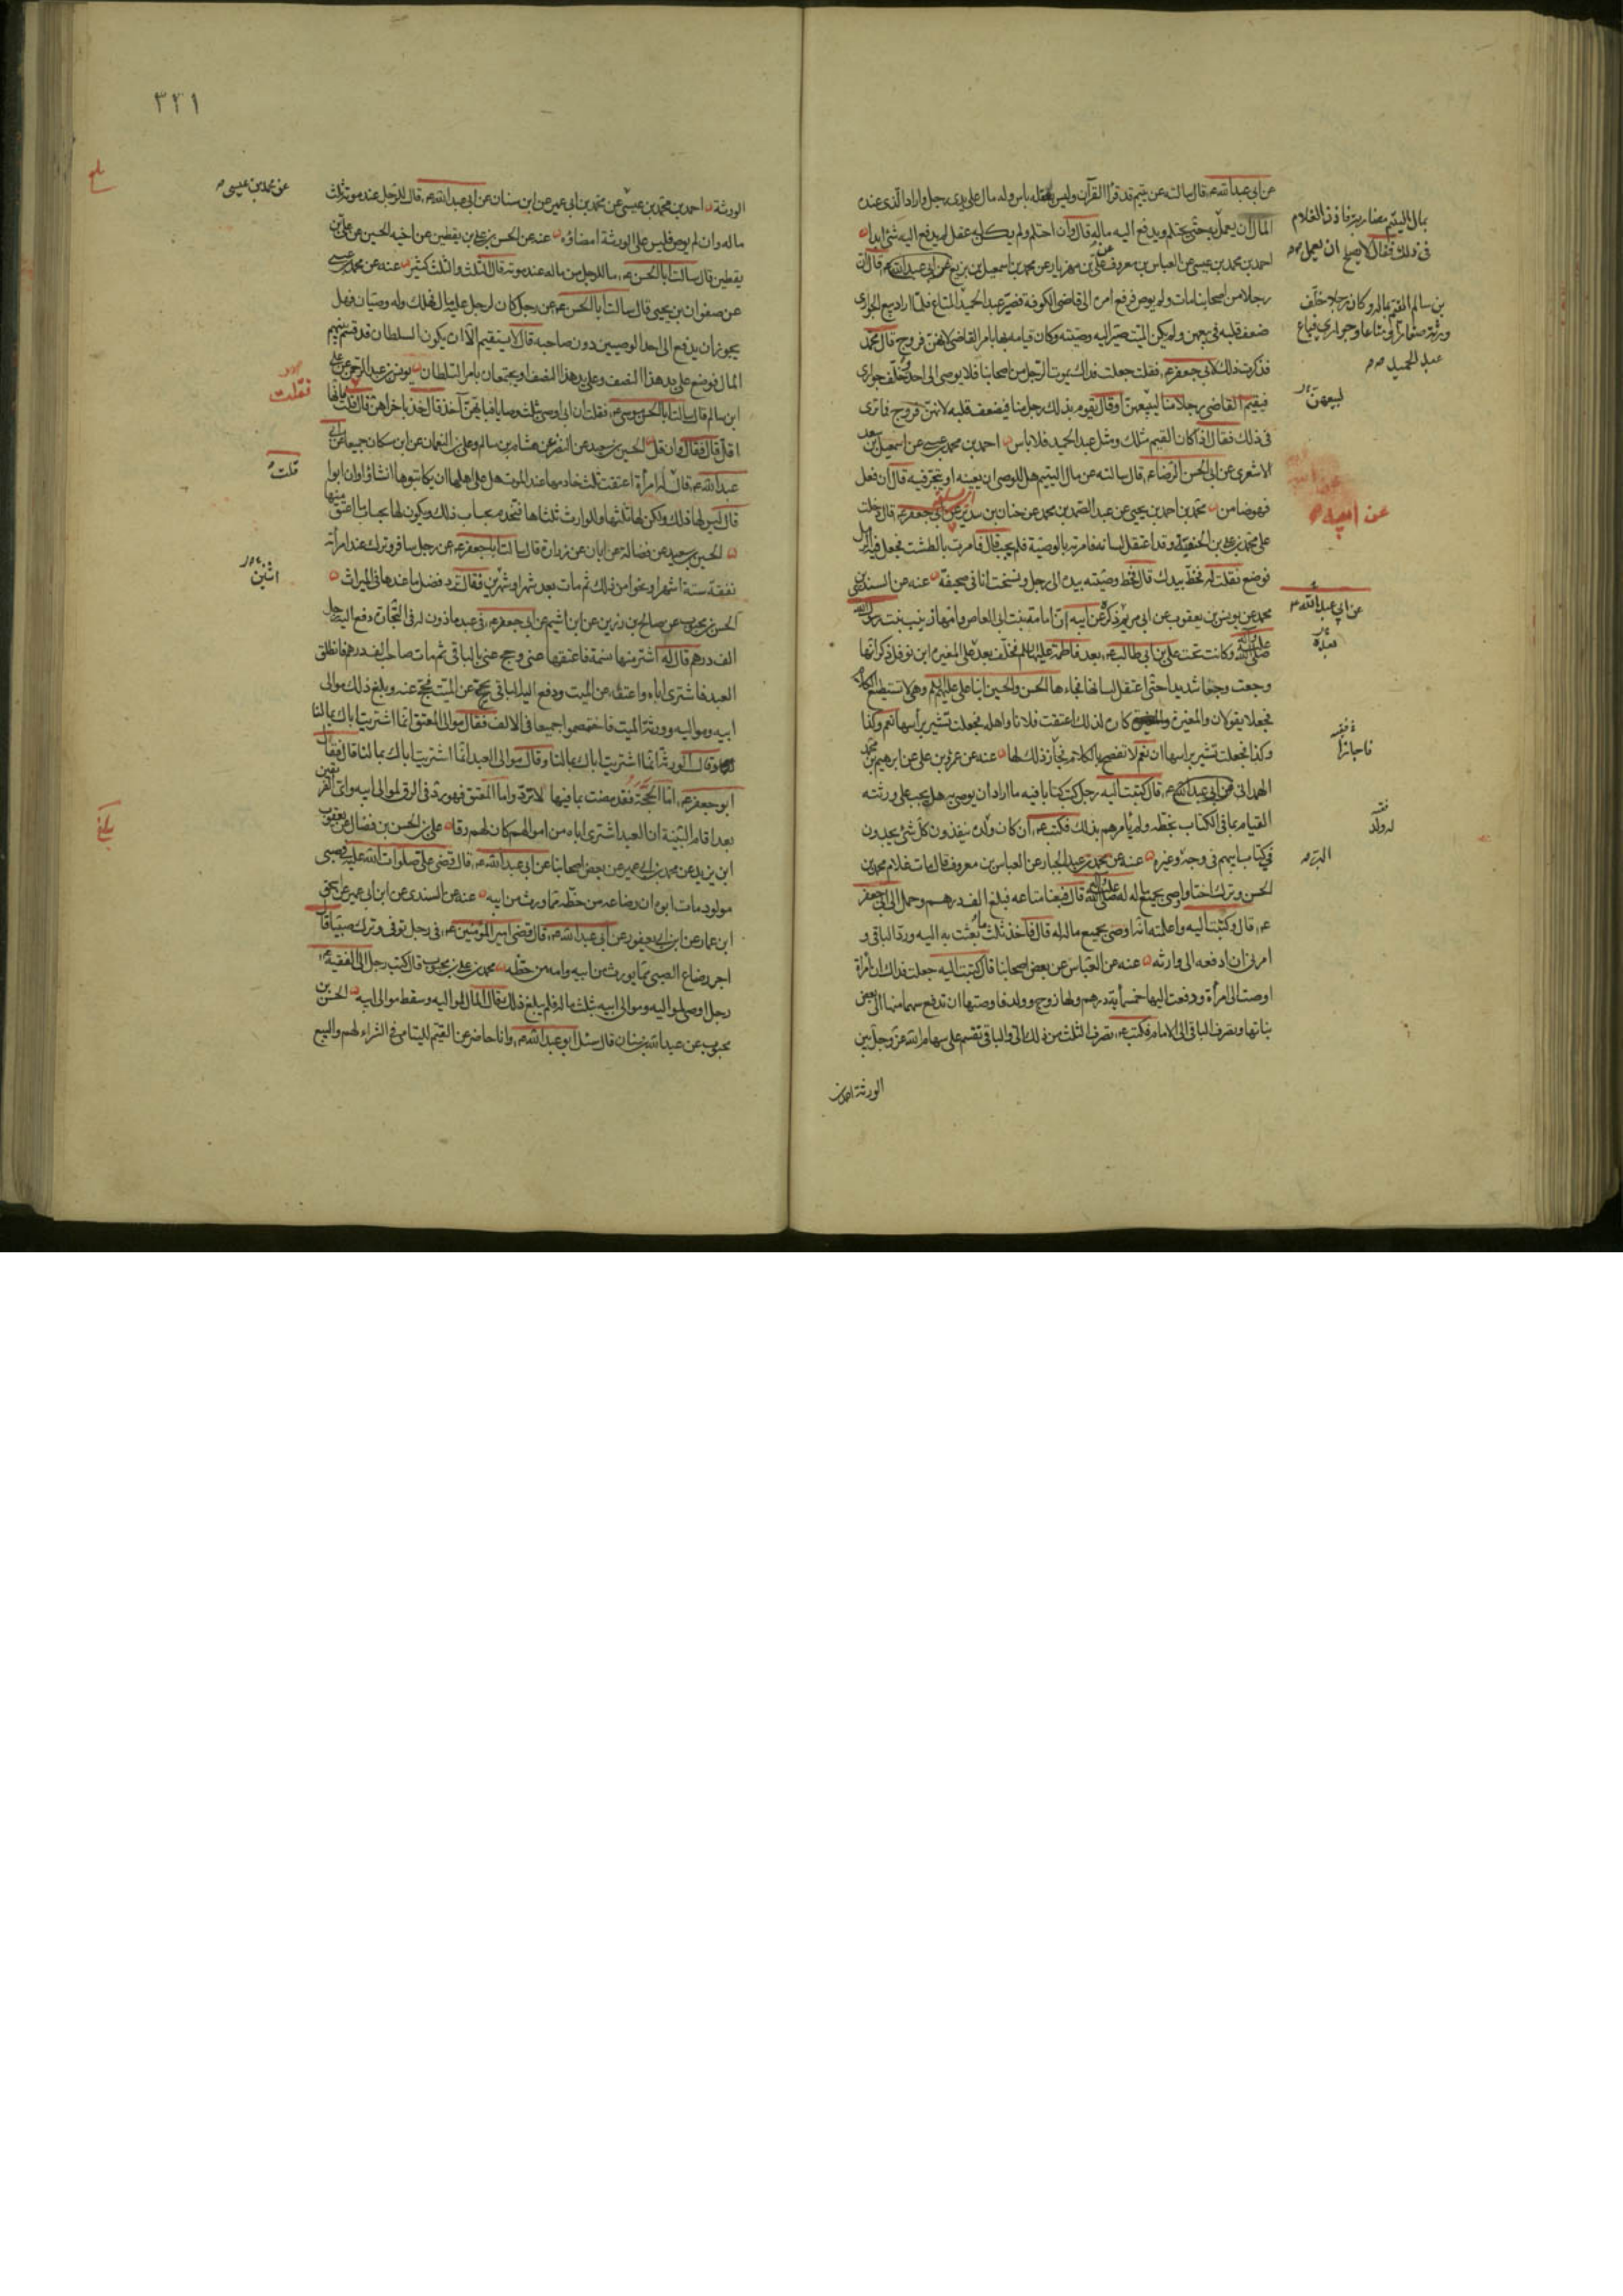 عن ابي عبد الله عم قال سالته عن يتيم قد قرا القرآن وليس بعقله باس وله مال على يدي رجل واراد الذي عنده
المال ان يعمل به حتى يحتلم ويدفع اليه ماله قال وان احتلم ولم يكن له عقل لم يدفع اليه شئ ابدا
احمد بن محمد بن عيسى عن العباس بن معروف عن علي بن مهزيار عن محمد بن اسمعيل بن بزيع قال ان
رجلا من اصحابنا مات ولم يوص فرفع امره الى قاضي الكوفة فصير عبد الحميد المتاع فلما اراد بيع الجواري
ضعف قلبه في بيعهن ولم يكن الميت صير اليه وصيته وكان قيامه بهذا بامر القاضي لانهن فروج قال محمد
فذكرت ذلك لابي جعفر عم فقلت جعلت فداك يموت الرجل من اصحابنا فلا يوصي الى احد وخلف جواري
فيقيم القاضي رجلا منا ليبيعهن او قال يقوم بذلك رجل منا فيضعف قلبه لانهن فروج فما ترى
في ذلك فقال اذا كان القيم مثلك ومثل عبد الحميد فلا باس احمد بن محمد بن عيسى عن اسمعيل بن سعد
الاشعري عن ابي الحسن الرضا عم قال سالته عن مال اليتيم هل للوصي ان يعينه او يتجر فيه قال ان فعل
فهو ضامن محمد بن احمد بن يحيى عن عبد الصمد بن محمد عن حنان بن سدير عن ابي جعفر عم قال دخلت
على محمد بن علي بن الحنفية وقد اعتقل لسانه فامرته بالوصية فلم يجب قال فامرت بالطشت فجعل فيه الرمل
فوضع فقلت له فخط بيدك قال فخط وصيته بيده الى رجل ونسخت انا في صحيفة عنه عن السندي بن
محمد عن يونس بن يعقوب عن ابي مريم ذكره عن ابيه ان امامة بنت ابي العاص وامها زينب بنت رسول الله
صلى الله عليه وآله وكانت تحت علي بن ابي طالب عم بعد فاطمة عليها السلم فخلف بعد علي المغيرة ابن نوفل ذكر انها
وجعت وجعا شديدا حتى اعتقل لسانها فجاءها الحسن والحسين ابنا علي عليهم السلم وهي لا تستطيع الكلام
فجعلا يقولان والمغيرة كاره لذلك اعتقت فلانا واهله فجعلت تشير براسها نعم وكذا
وكذا فجعلت تشير براسها ان نعم لا تفصح بالكلام فجاز ذلك لها عنه عن عمرو بن علي عن ابرهيم بن محمد
الهمداني قال كتبت اليه رجل كتب كتابا فيه ما اراد ان يوصي به هل يجب على ورثته
القيام بما في الكتاب بخطه ولم يامرهم بذلك فكتب عم ان كان ولده ينفذون كل شئ يجدون
في كتاب ابيهم في وجه وغيره عنه عن محمد بن عبد الجبار عن العباس بن معروف قال مات غلام محمد بن
الحسن وترك اختا واوصى بجميع ماله له عم قال فبعنا متاعه فبلغ الف درهم وحمل الى ابي جعفر
عم قال وكتبت اليه واعلمته انه اوصى بجميع ماله له قال فاخذ ثلث ما بعثت به اليه ورد الباقي و
امرني ان ادفعه الى وارثه عنه عن العباس عن بعض اصحابنا قال كتبت اليه جعلت فداك ان امراة
اوصت الى امراة ودفعت اليها خمسمأية درهم ولها زوج وولد فاوصتها ان تدفع سهما منها الى بعض
بناتها وتصرف الباقي الى الامام فكتب عم تصرف الثلث من ذلك الي والباقي تقسم على سهام الله عز وجل بين
الورثة احمد بن
بمال اليتيم مضاربة فاذن الغلام
في ذلك فقال لا يصلح ان يعمل به
بن سالم القيم بماله وكان رجلا خلف
ورثة صغارا ومتاعا وجواري فباع
عبد الحميد
لبيعهن
عن ابيه
عن ابي عبد الله
بعده
فاجازا
له ولد
اليه
٣٢١
الورثة احمد بن محمد بن عيسى عن محمد بن ابي عمير عن ابن سنان عن ابي عبد الله عم قال للرجل عند موته ثلث
ماله وان لم يوص فليس على الورثة امضاؤه عنه عن الحسن بن علي بن يقطين عن اخيه الحسين عن علي بن
يقطين قال سالت ابا الحسن عم ما للرجل من ماله عند موته قال الثلث والثلث كثير عنه عن محمد بن عيسى
عن صفوان بن يحيى قال سالت ابا الحسن عم عن رجل كان لرجل عليه مال فهلك وله وصيان فهل
يجوز ان يدفع الى احد الوصيين دون صاحبه قال لا يستقيم الا ان يكون السلطان قد قسم بينهم
المال فوضع على يد هذا النصف وعلى يد هذا النصف او يجتمعان بامر السلطان يونس بن عبد الرحمن عن علي
ابن سالم قال سالت ابا الحسن موسى عم فقلت ان ابي اوصى بثلث وصايا فبايهن آخذ قال خذ باخراهن قال قلت فانها
اقل قال فقال وان قل الحسين بن سعيد عن النضر عن هشام بن سالم وعلي بن النعمان عن ابن مسكان جميعا عن ابي
عبد الله عم قال له امراة اعتقت ثلث خادمها عند الموت هل على اهلها ان يكاتبوها ان شاؤا وان ابوا
قال ليس لها ذلك ولكن لها ثلثها وللوارث ثلثاها فتخدم بحساب ذلك ويكون لها بحساب ما اعتق منها
الحسين بن سعيد عن فضالة عن ابان عن زرارة قال سالت ابا جعفر عم عن رجل سافر وترك عند امراته
نفقة ستة اشهر او نحوا من ذلك ثم مات بعد شهر او شهرين فقال ترد فضل ما عندها في الميراث
الحسن بن محبوب عن صالح بن رزين عن ابن اشيم عن ابي جعفر عم في عبد ماذون له في التجارة دفع اليه رجل
الف درهم قال له اشتر منها نسمة فاعتقها عني وحج عني بالباقي ثم مات صاحب الف درهم فانطلق
العبد فاشترى اباه واعتقه عن الميت ودفع اليه الباقي يحج عن الميت فحج عنه وبلغ ذلك موالي
ابيه ومواليه وورثة الميت فاختصموا جميعا في الالف فقال موالي المعتق انما اشتريت اباك بمالنا
وقال الورثة انما اشتريت اباك بمالنا وقال موالي العبد انما اشتريت اباك بمالنا قال فقال
ابو جعفر عم اما الحجة فقد مضت بما فيها لا ترد واما المعتق فهو رد في الرق لموالي ابيه واي الفريقين
بعد اقام البينة ان العبد اشترى اباه من اموالهم كان لهم رقا علي بن الحسن بن فضال عن يعقوب
ابن يزيد عن محمد بن ابي عمير عن بعض اصحابنا عن ابي عبد الله عم قال قضى علي صلوات الله عليه في صبي
مولود مات ابوه ان رضاعه من حظه مما ورث من ابيه عنه عن السندي عن ابن ابي عمير عن اسحق
ابن عمار عن ابن ابي يعفور عن ابي عبد الله عم قال قضى امير المؤمنين عم في رجل توفي وترك صبيا قال
اجر رضاع الصبي مما يورث من ابيه وامه من حظه محمد بن علي بن محبوب قال كتب رجل الى الفقيه عم
رجل اوصى لمواليه وموالي ابيه بثلث ماله فلم يبلغ ذلك فقال المال لمواليه وسقط موالي ابيه الحسن بن
محبوب عن عبد الله بن سنان قال سئل ابو عبد الله عم وانا حاضر عن القيم لليتامى في الشراء لهم والبيع
عن محمد بن عيسى
فقلت
قلت
اثنين
بلغ